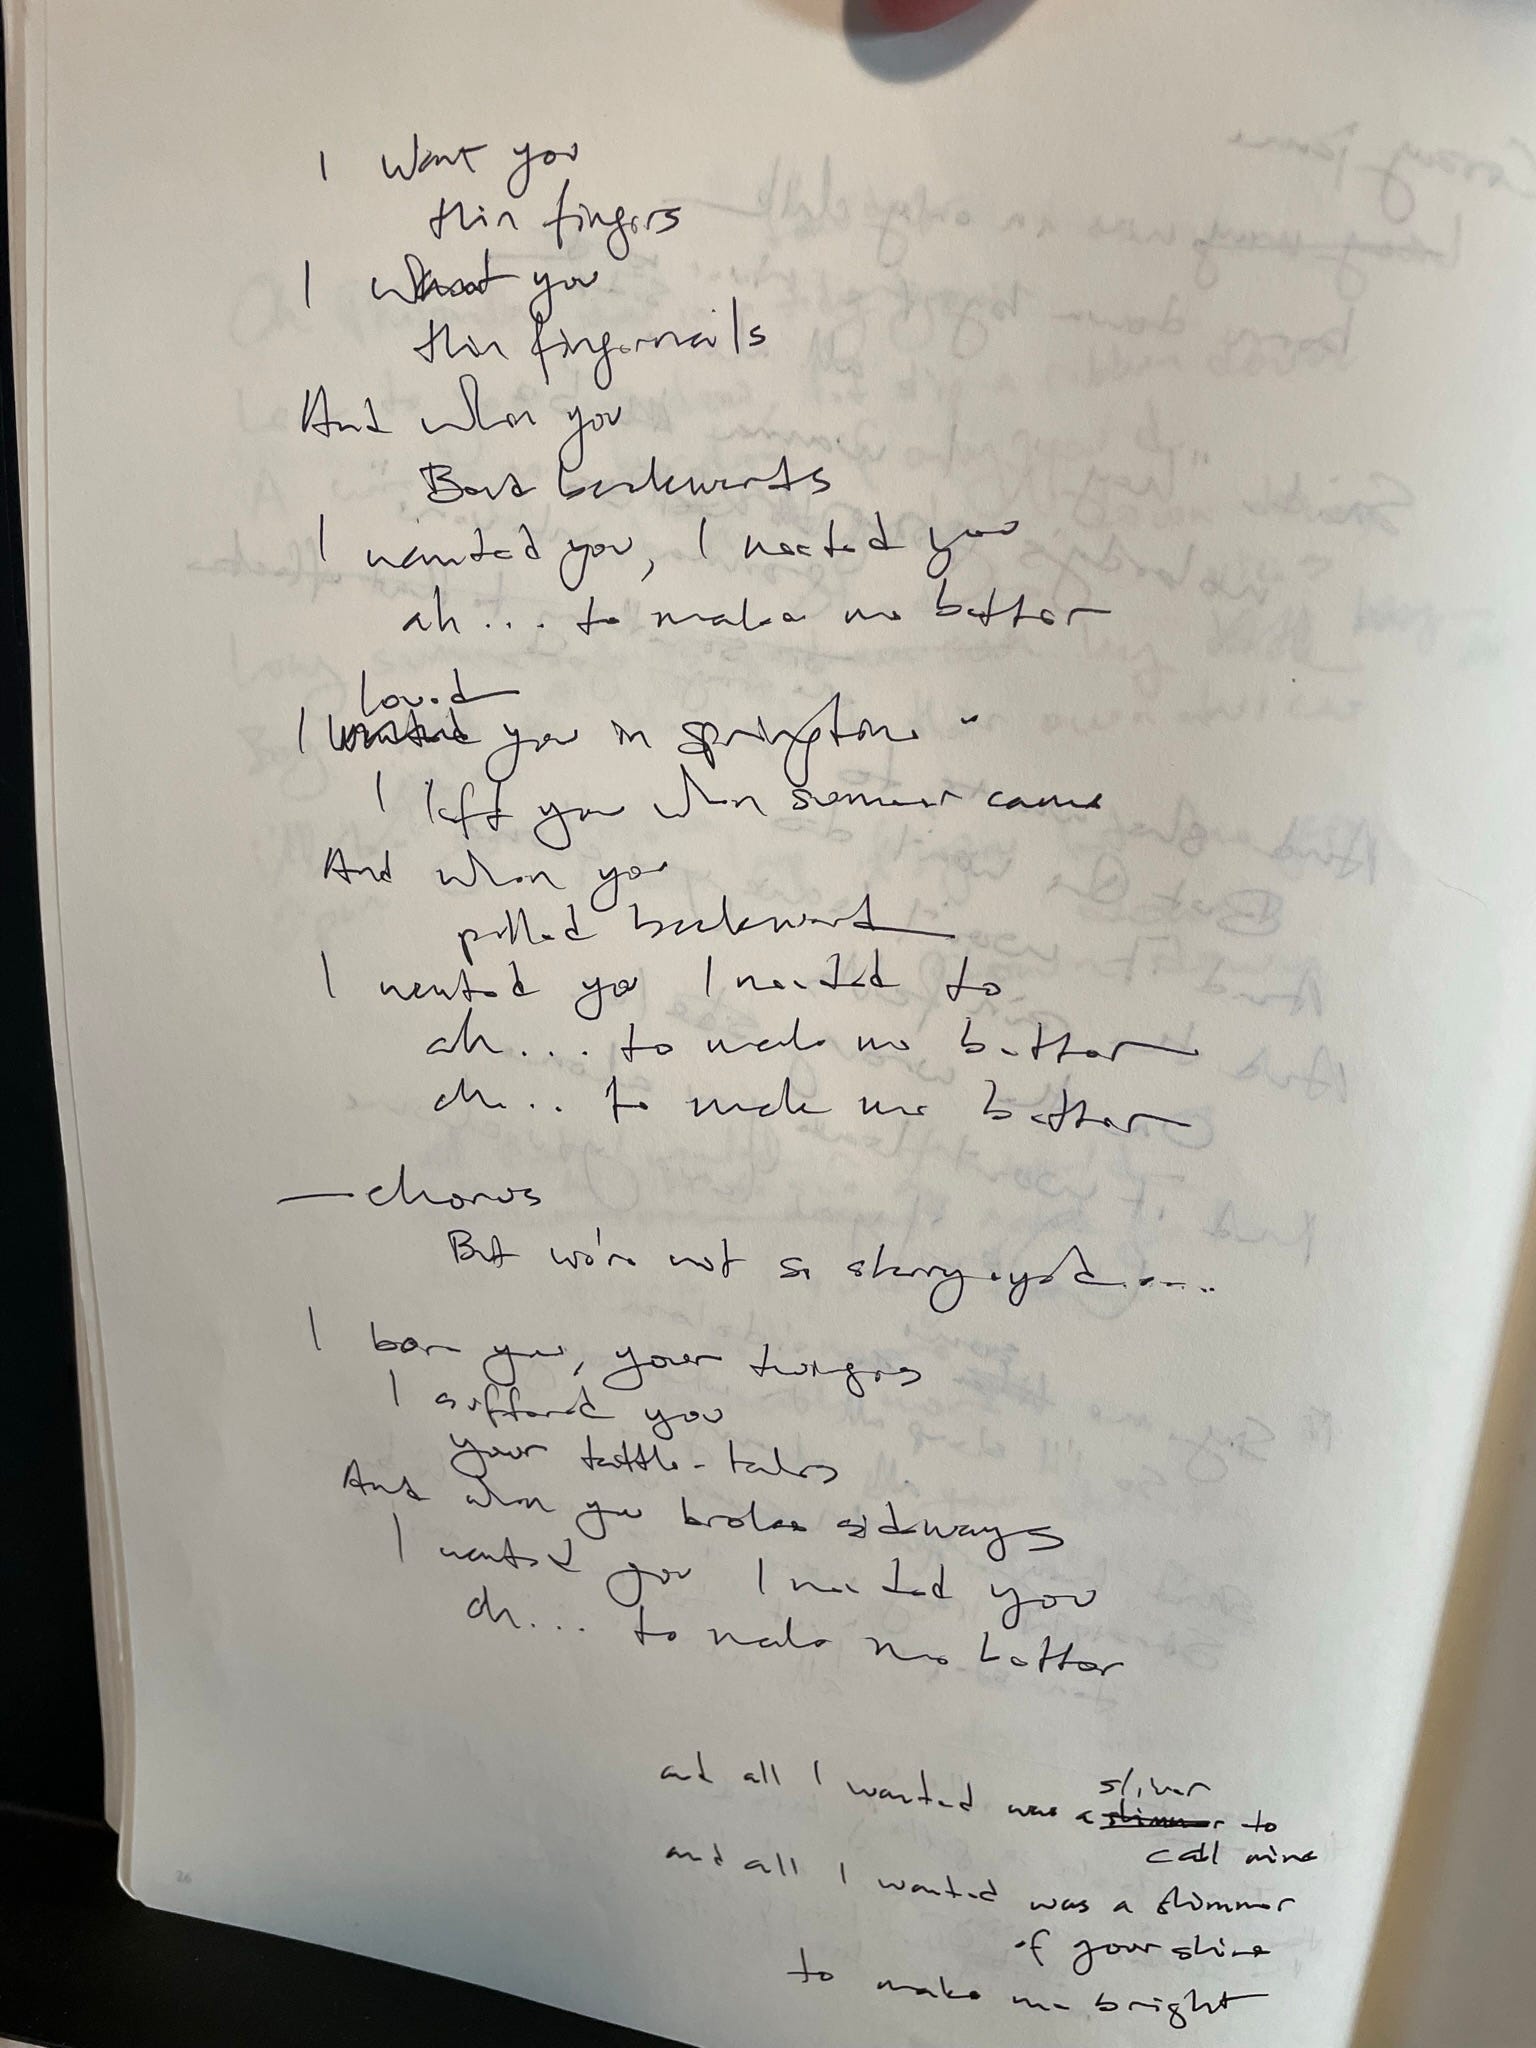 I want you
thin fingers
I want you
thin fingernails
And when you
Bend backwards
I wanted you, I needed you
ah... to make me better
loved
I wanted you in springtime
I left you when summer came
And when you
pulled backward
I wanted you I needed to
ah... to make me better
ah... to make me better
— chorus
But we're not so starry eyed....
I bore you, your hungers
I suffered you
your tattle-tales
And when you broke sideways
I wanted you I needed you
ah... to make me better
sliver
and all I wanted was a shimmer to
call mine
and all I wanted was a shimmer
of your shine
to make me bright
26